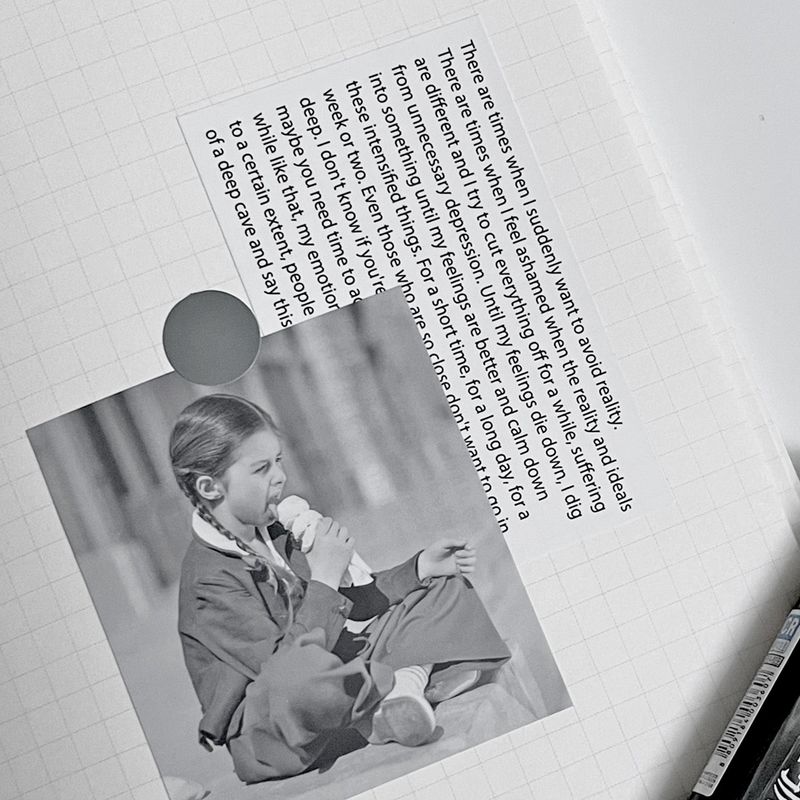 There are times when I suddenly want to avoid reality.
There are times when I feel ashamed when the reality and ideals
are different and I try to cut everything off for a while, suffering
from unnecessary depression. Until my feelings die down, I dig
into something until my feelings are better and calm down
these intensified things. For a short time, for a long day, for a
week or two. Even those who are so close don't want to go in
deep. I don't know if you're
maybe you need time to
while like that, my emotion
to a certain extent, people
of a deep cave and say this